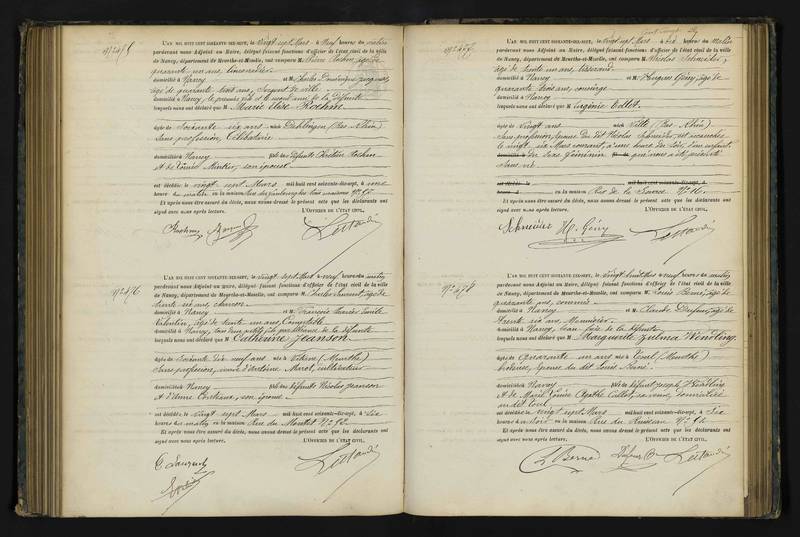 N° 475
L'AN MIL HUIT CENT SOIXANTE-DIX-SEPT, le vingt sept Mars à Neuf heures du matin
pardevant nous Adjoint au Maire, délégué faisant fonctions d'officier de l'état civil de la ville
de Nancy, département de Meurthe-et-Moselle, ont comparu M. Pierre Roehm âgé de
quarante un ans,
domicilié à Nancy et M. Charles Dominique
âgé de quarante trois ans, Sergent de ville
domicilié à Nancy, le premier père et le second ami de la défunte
lesquels nous ont déclaré que Marie Elise Roehm
âgée de Soixante six ans née à Dehlingen (Bas Rhin)
Sans profession, Célibataire
domiciliée à Nancy fille des défunts Chrétien Roehm
et de Louise son épouse
est décédée le vingt sept Mars mil huit cent soixante-dix-sept, à une
heure du matin en la maison rue du faubourg des trois maisons N°
Et après nous être assuré du décès, nous avons dressé le présent acte que les déclarants ont
signé avec nous après lecture. L'OFFICIER DE L'ÉTAT CIVIL,
Roehm
N° 476
L'AN MIL HUIT CENT SOIXANTE-DIX-SEPT, le vingt sept Mars à neuf heures du matin
pardevant nous Adjoint au Maire, délégué faisant fonctions d'officier de l'état civil de la ville
de Nancy, département de Meurthe-et-Moselle, ont comparu M. Charles Laurent, âgé de
trente six ans, charron
domicilié à Nancy et M. François Xavier Emile
Valentin, âgé de trente un ans, Comptable
domicilié à Nancy, tous deux petits fils par alliance de la défunte
lesquels nous ont déclaré que Catherine Jeanson
âgée de Soixante dix neuf ans née à (Meurthe)
Sans profession, veuve d'Antoine Marot, cultivateur
domiciliée à Nancy fille des défunts Nicolas Jeanson
et d'Anne son épouse
est décédée le vingt sept Mars mil huit cent soixante-dix-sept, à Six
heures du matin en la maison Rue du Montet N°
Et après nous être assuré du décès, nous avons dressé le présent acte que les déclarants ont
signé avec nous après lecture. L'OFFICIER DE L'ÉTAT CIVIL,
C Laurent
N° 477
L'AN MIL HUIT CENT SOIXANTE-DIX-SEPT, le vingt sept Mars à dix heures du matin
pardevant nous Adjoint au Maire, délégué faisant fonctions d'officier de l'état civil de la ville
de Nancy, département de Meurthe-et-Moselle, ont comparu M. Nicolas Schneider,
âgé de trente un ans, tisserand
domicilié à Nancy et M. Hugues Gény, âgé de
quarante trois ans, concierge
domicilié à Nancy
lesquels nous ont déclaré que Virginie Collet
âgée de vingt ans née à Villé (Bas Rhin)
Sans profession, épouse du dit Nicolas Schneider, est accouchée
le vingt six Mars courant, à une heure du soir, d'un enfant
du Sexe féminin que nous a été présenté
Sans vie
est décédé le mil huit cent soixante-dix-sept, à
heure d en la maison Rue de la Source N° 16
Et après nous être assuré du décès, nous avons dressé le présent acte que les déclarants ont
signé avec nous après lecture. L'OFFICIER DE L'ÉTAT CIVIL,
Schneider H. Gény
N° 478
L'AN MIL HUIT CENT SOIXANTE-DIX-SEPT, le vingt huit Mars à neuf heures du matin
pardevant nous Adjoint au Maire, délégué faisant fonctions d'officier de l'état civil de la ville
de Nancy, département de Meurthe-et-Moselle, ont comparu M. Louis Berné, âgé de
quarante ans, commis
domicilié à Nancy et M. Claude Dufour, âgé de
trente six ans, Menuisier
domicilié à Nancy, beau-frère de la défunte
lesquels nous ont déclaré que Marguerite Zulma Wendling
âgée de Quarante un ans née à Toul (Meurthe)
brodeuse, épouse du dit Louis Berné
domiciliée à Nancy fille de défunt Joseph Wendling
et de Marie Louise Agathe Collot, sa veuve, domiciliée
au dit Toul
est décédée le vingt sept Mars mil huit cent soixante-dix-sept, à Six
heures du soir en la maison Rue du Ruisseau N°
Et après nous être assuré du décès, nous avons dressé le présent acte que les déclarants ont
signé avec nous après lecture. L'OFFICIER DE L'ÉTAT CIVIL,
L Berné Dufour C